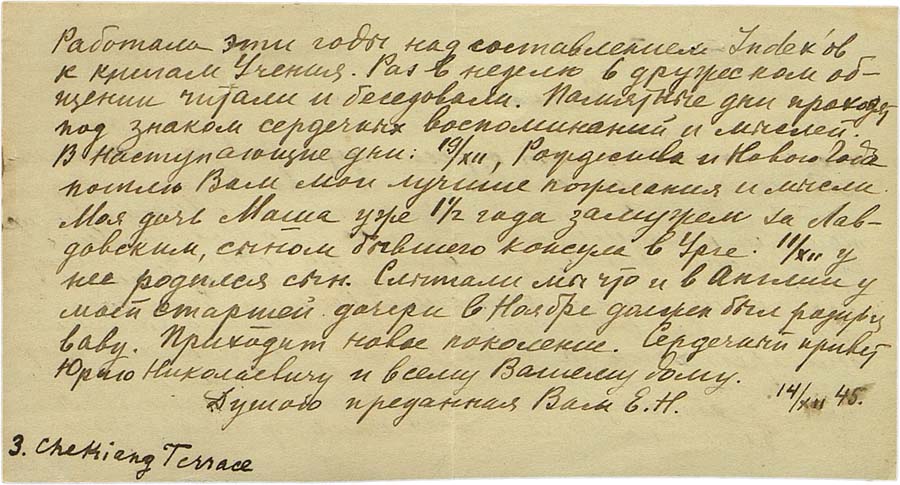 Работала эти годы над составлением Index'ов
к книгам Учения. Раз в неделю в дружеском об-
щении читали и беседовали. Памятные дни проходят
под знаком сердечных воспоминаний и мыслей.
В наступающие дни: 19/XII, Рождества и Нового Года
пошлю Вам мои лучшие пожелания и мысли.
Моя дочь Маша уже 1½ года замужем за Лав-
довским, сыном бывшего консула в Урге. 11/XII у
нее родился сын. Слытали мы что и в Англии у
моей старшей дочери в Ноябре должен был родиться
баву. Приходит новое поколение. Сердечный привет
Юрию Николаевичу и всему Вашему дому.
Душою преданная Вам Е.Н. 14/XII 45.
3. Chekiang Terrace